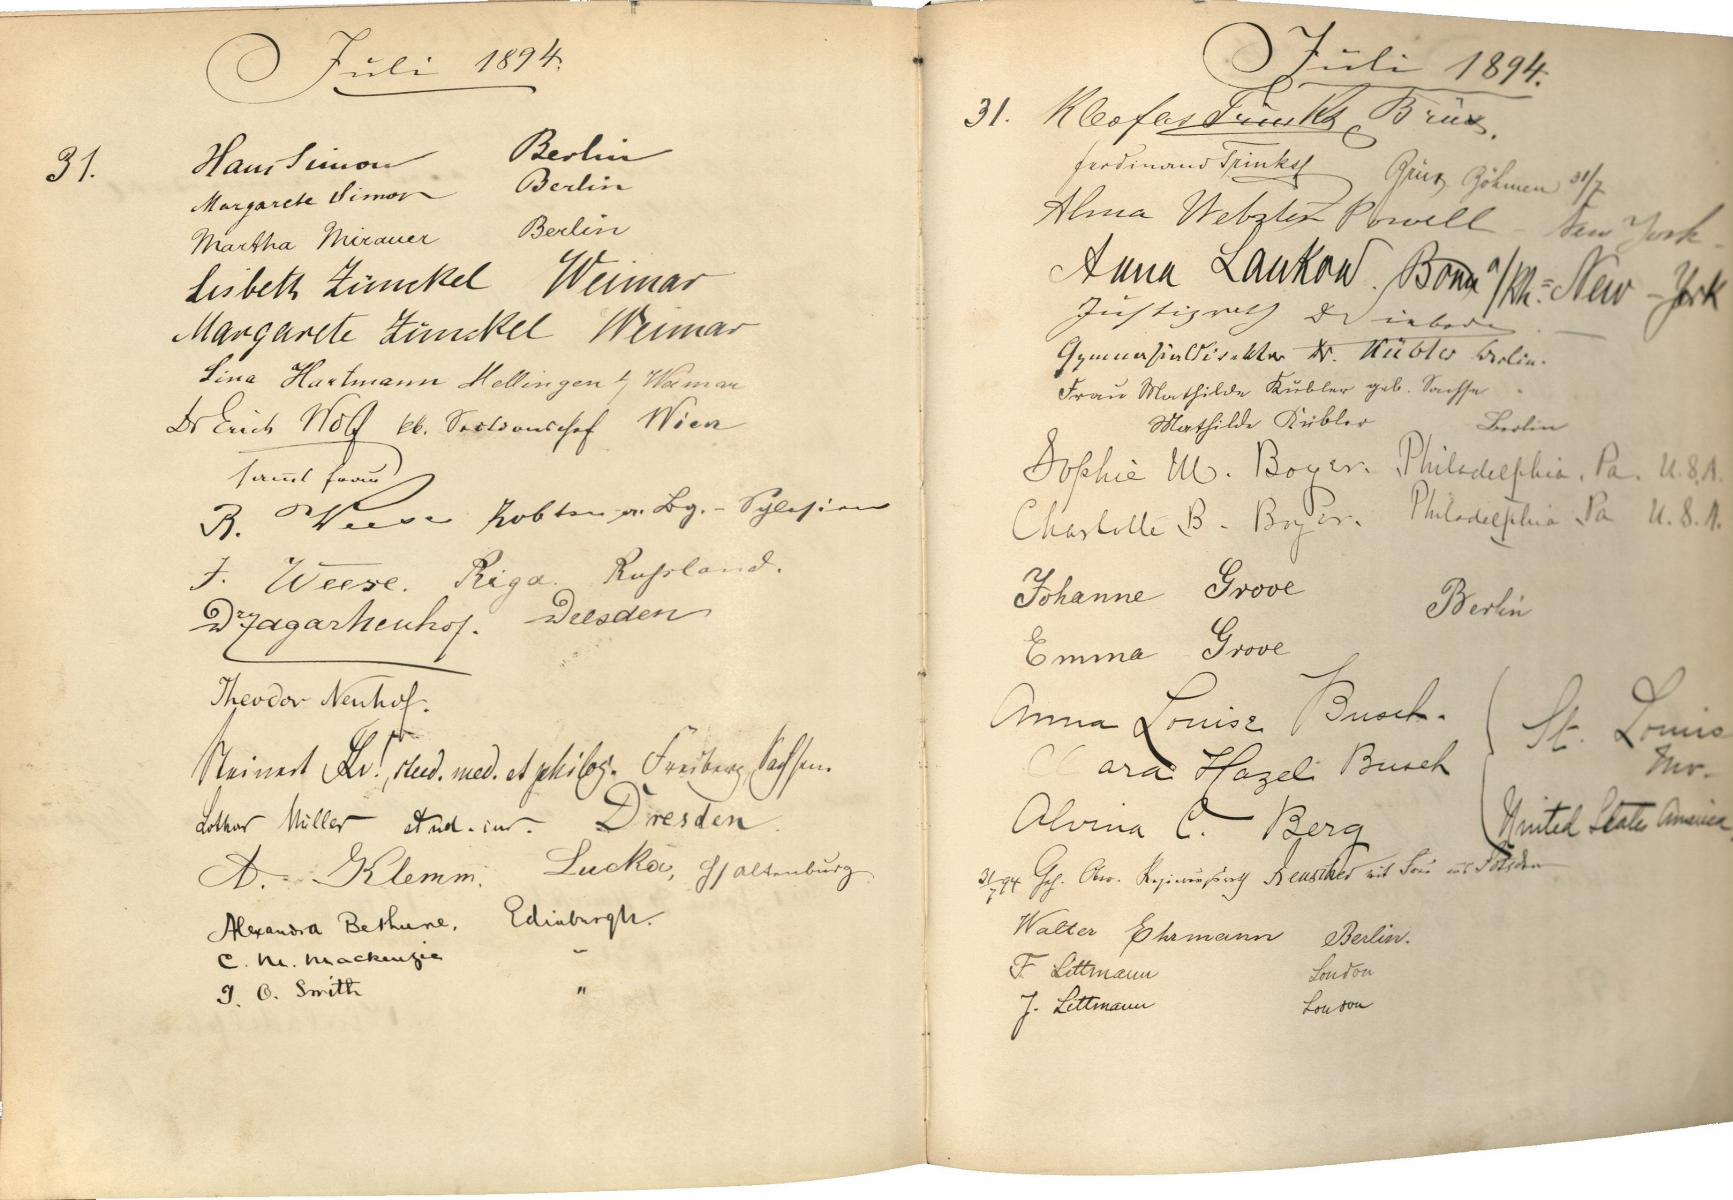 Juli 1894.
31. Hans Simon Berlin
Margarete Simon Berlin
Martha Mirauer Berlin
Lisbeth Zünckel Weimar
Margarete Zünckel Weimar
Lina Hartmann Mellingen b/ Weimar
Dr Erich Wolf kk. Sectionschef Wien
samt Frau
R. Weese
J. Weese. Riga. Russland.
Dresden
Theodor Neuhof.
Steinert stud. med. et philos. Freiberg Sachsen.
Lothar Müller stud. jur. Dresden
A. Klemm. Lucka, S/Altenburg
Alexandra Bethune. Edinburgh.
C. M. Mackenzie "
J. O. Smith "
Juli 1894.
31. Kleofas Trinks Brüx.
Ferdinand Trinks Brüx Böhmen 31/7
Alma Webster Powell - New York -
Anna Lankow. Bonn a/Rh. = New-York
Justizrath Dr
Gymnasialdirektor Dr. Kübler Berlin.
Frau Mathilde Kübler geb. Sachse "
Mathilde Kübler Berlin
Sophie M. Boyer. Philadelphia, Pa. U.S.A.
Charlotte B. Boyer. Philadelphia Pa U.S.A.
Johanne Grove Berlin
Emma Grove
Anna Louise Busch. St. Louis
Clara Hazel Busch Mo.
Alvina C. Berg United States America
31/7 94 Geh. mit Frau aus Potsdam
Walter Ehrmann Berlin.
F. Littmann London
J. Littmann London